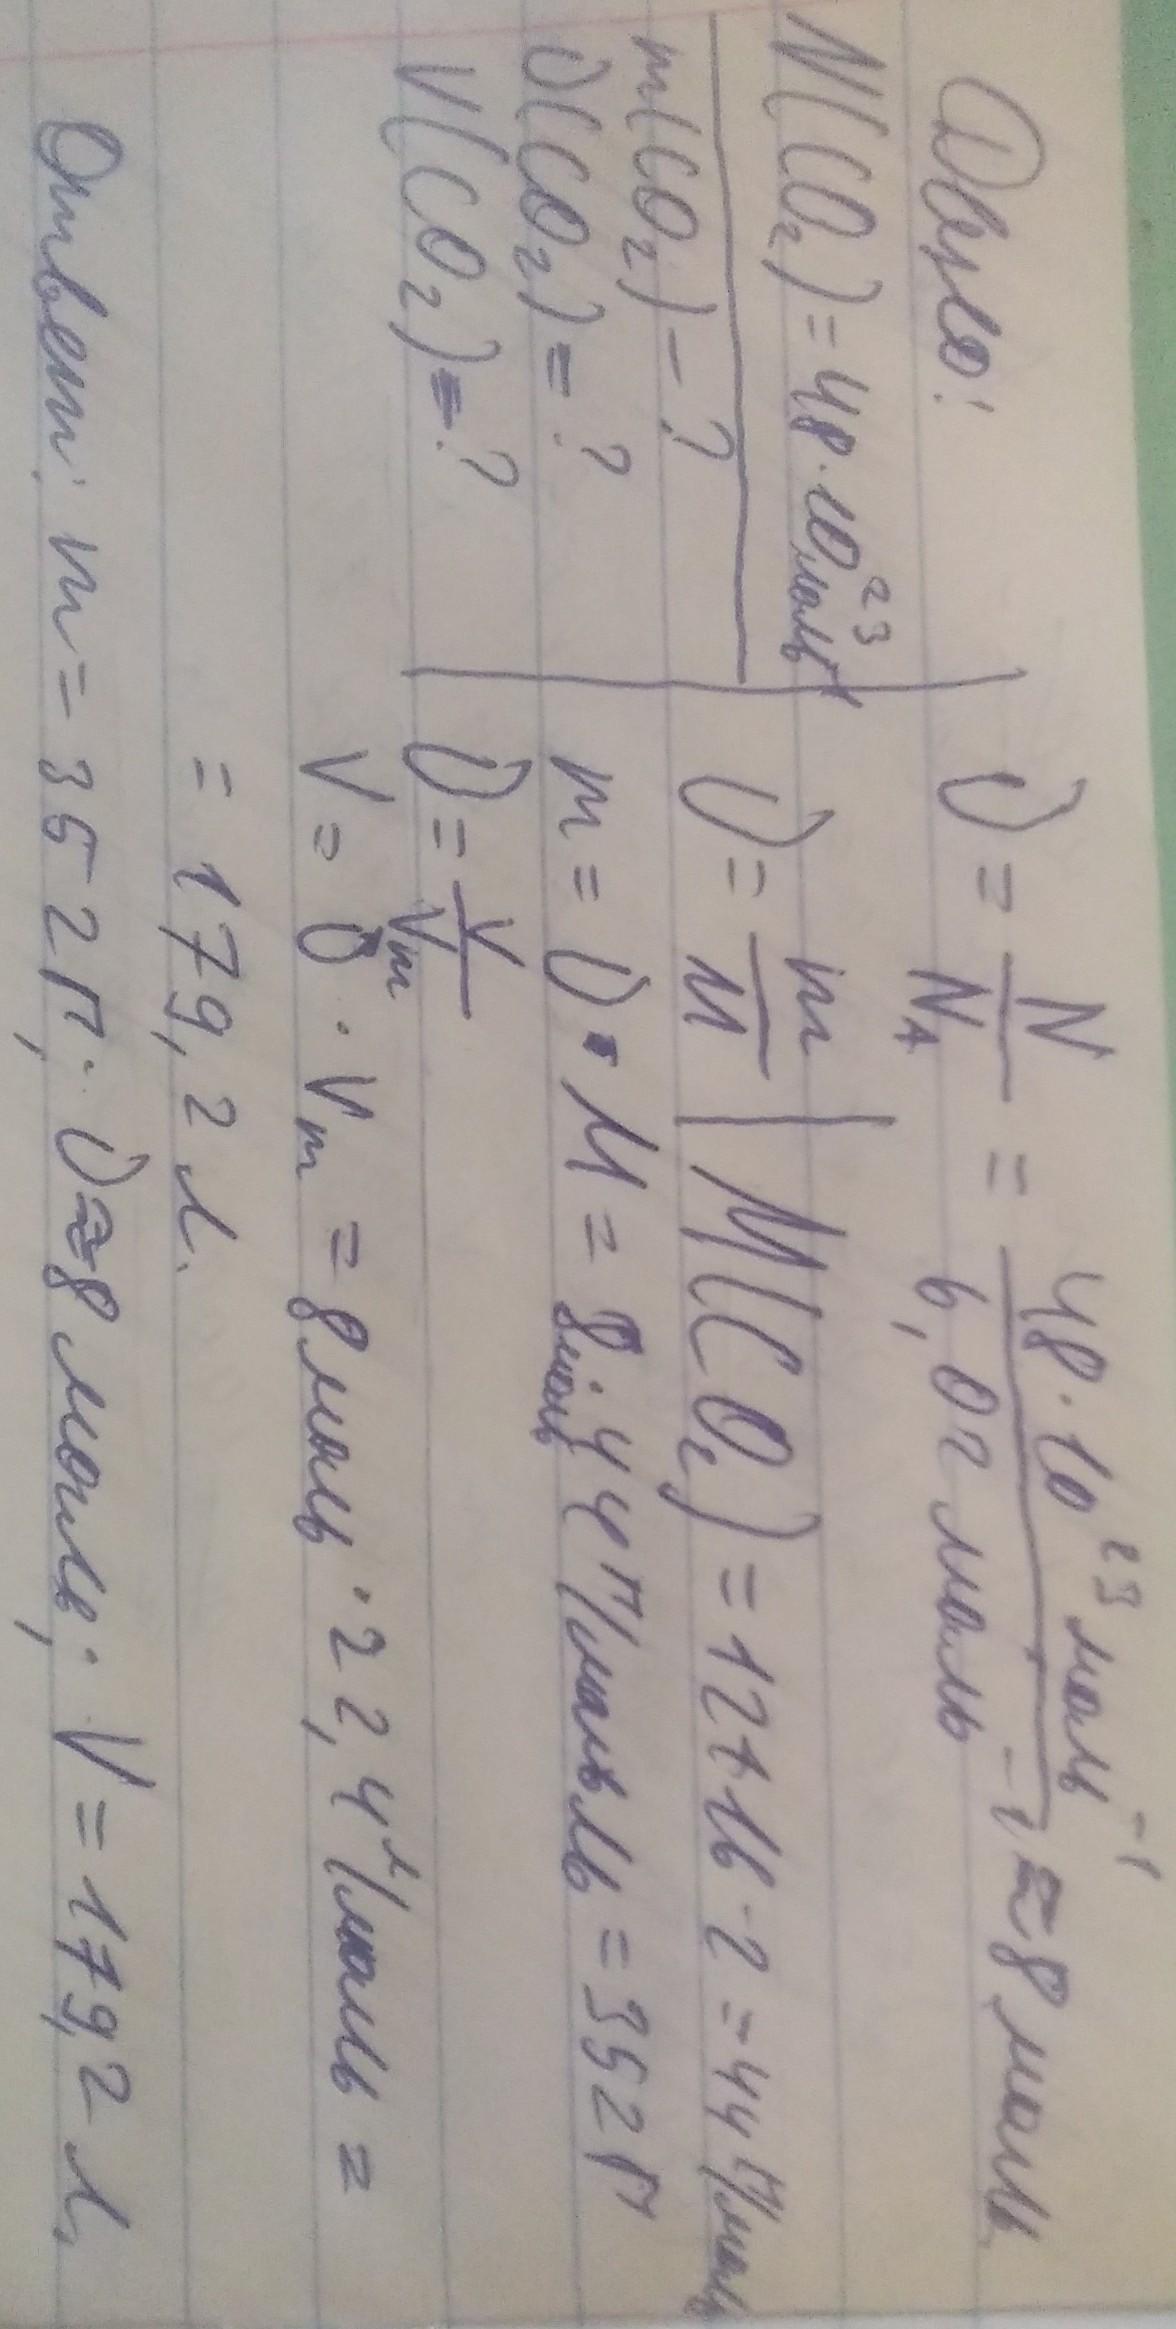 Дано:
N(CO₂) = 48·10²³ моль⁻¹
m(CO₂) - ?
υ(CO₂) = ?
V(CO₂) = ?
υ = N/N_A = 48·10²³ моль⁻¹/6,02 моль⁻¹ ≈ 8 моль
υ = m/M | M(CO₂) = 12+16·2 = 44 г/моль
m = υ·M = 8 моль·44 г/моль = 352 г
υ = V/Vm
V = υ·Vm = 8 моль·22,4 л/моль =
= 179,2 л.
Ответ: m = 352 г; υ ≈ 8 моль; V = 179,2 л.